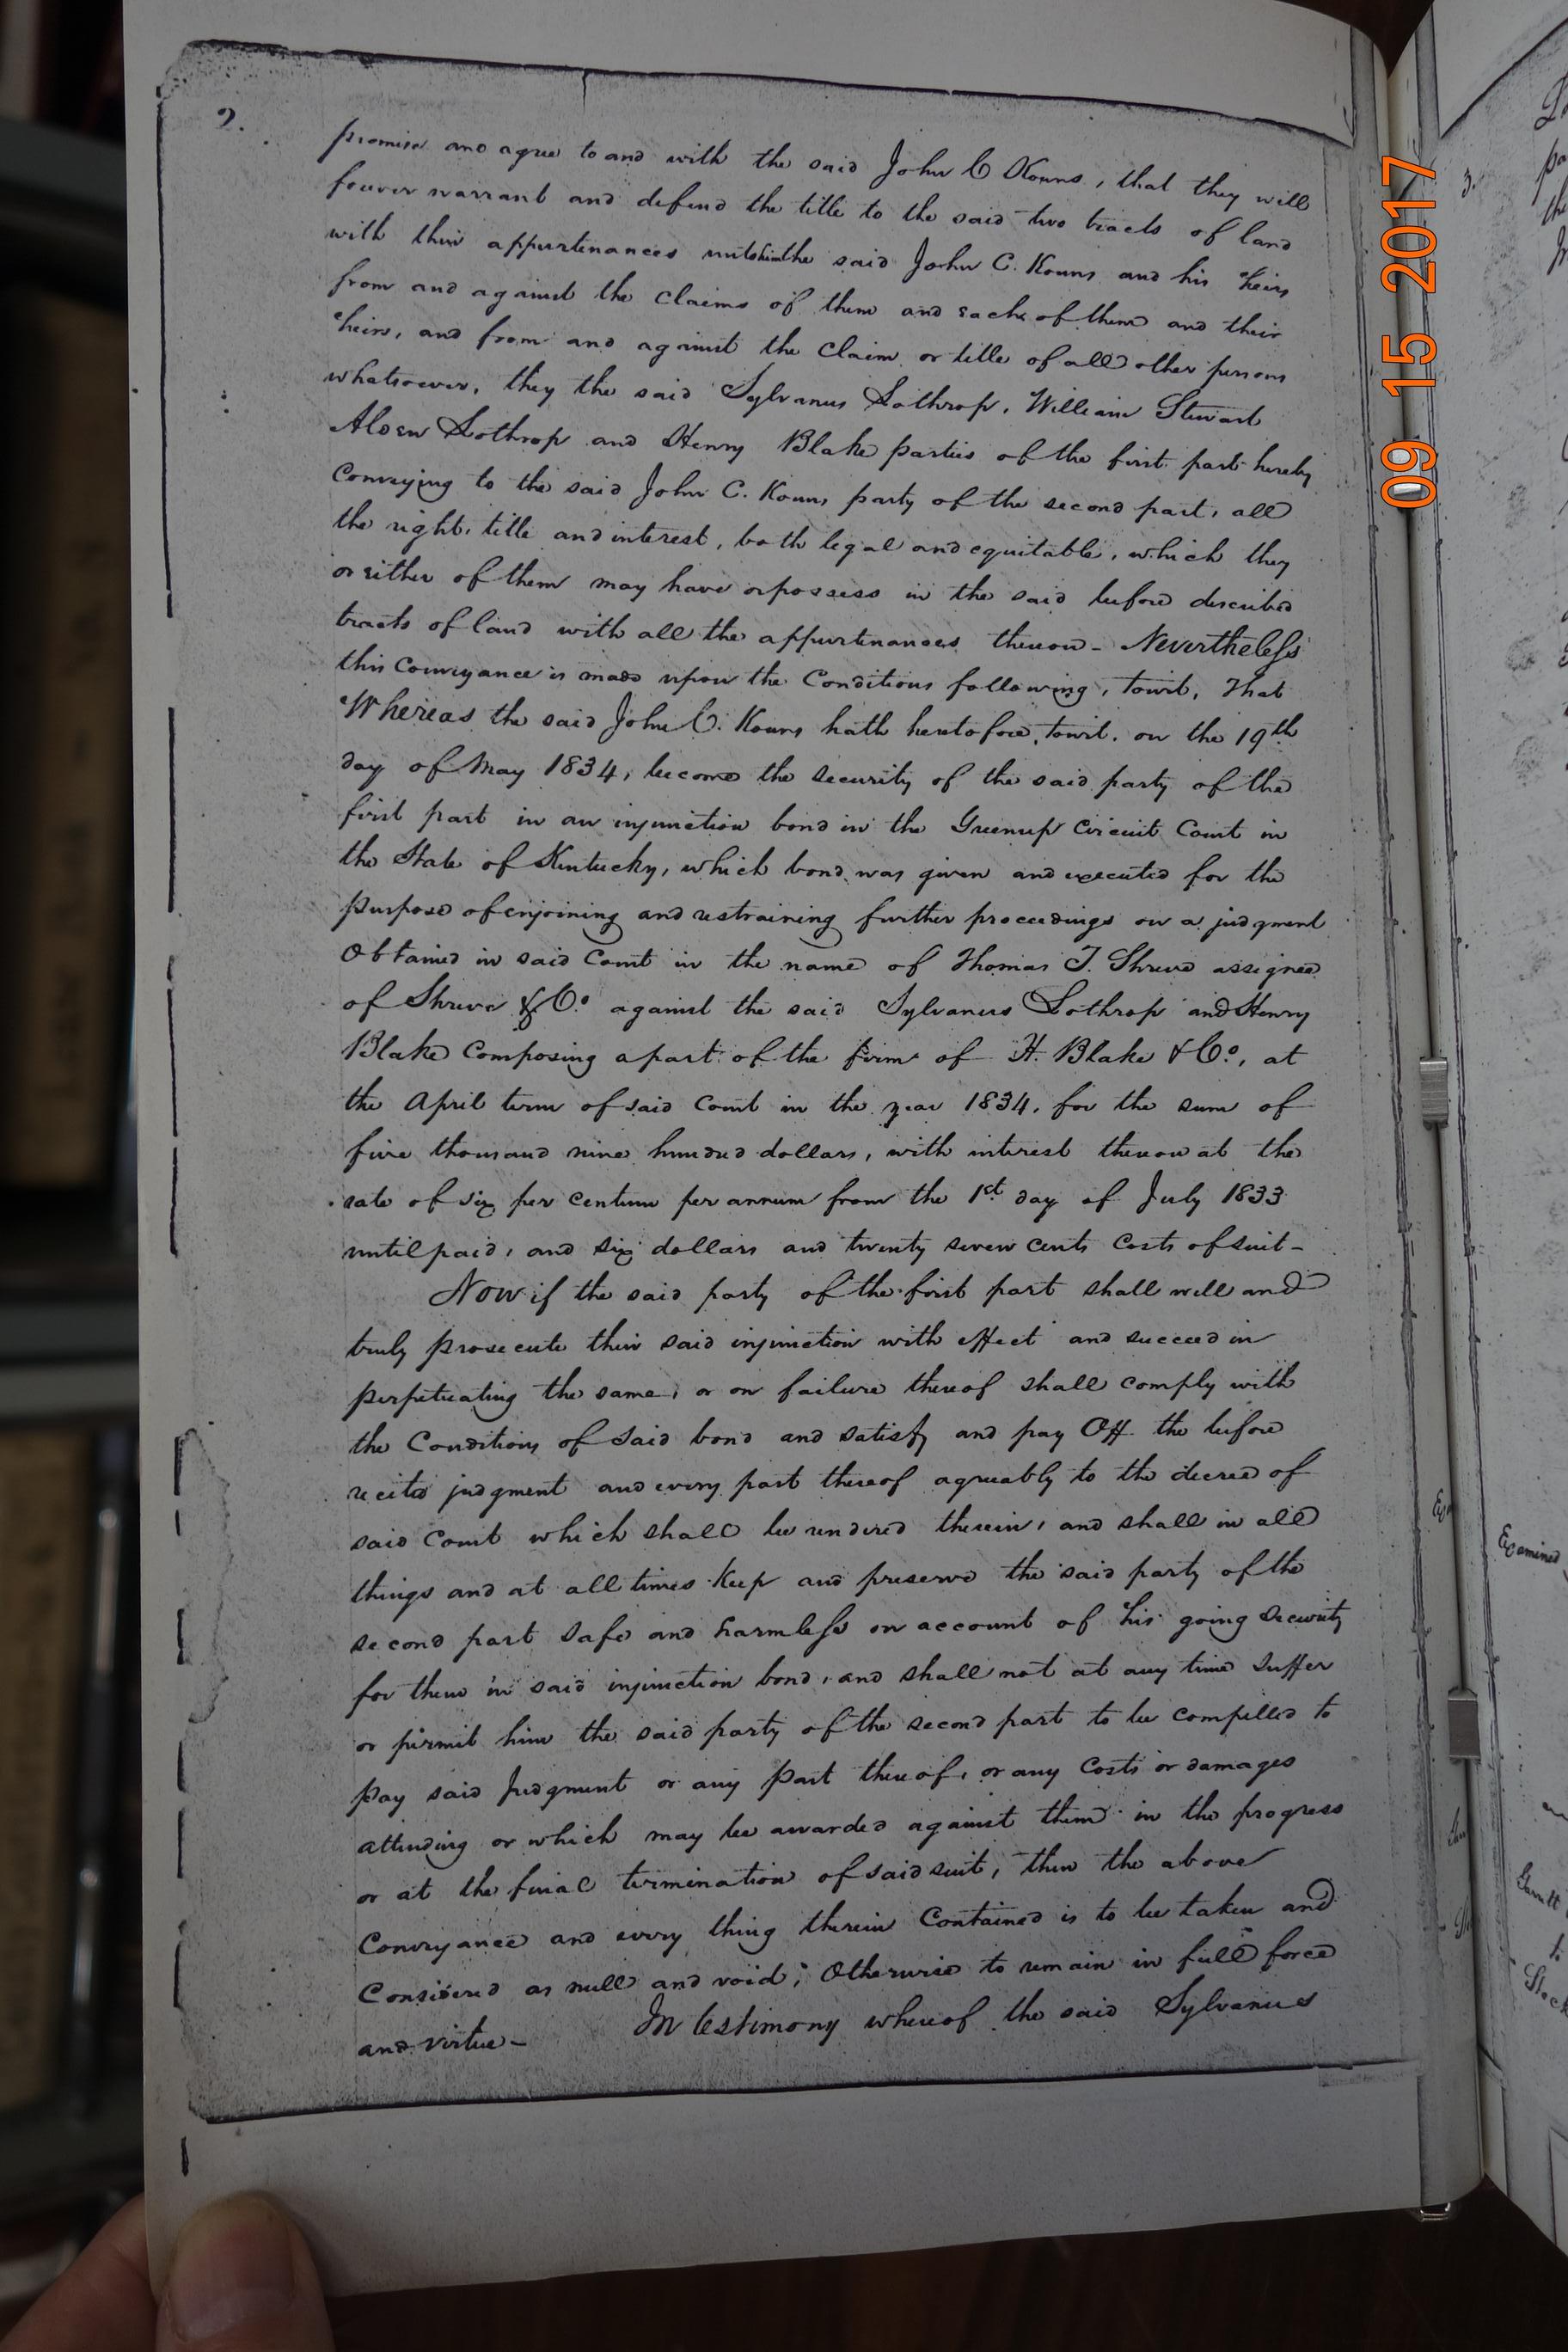 2.
promise and agree to and with the said John C Kouns, that they will
forever warrant and defend the title to the said two tracts of land
with their appurtenances unto him the said John C. Kouns and his heirs
from and against the claims of them and each of them and their
heirs, and from and against the claim or title of all other persons
whatsoever, they the said Sylvanus Lothrop, William Stewart
Alden Lothrop and Henry Blake parties of the first part hereby
Conveying to the said John C. Kouns party of the second part, all
the right, title and interest, both legal and equitable, which they
or either of them may have or possess in the said before described
tracts of land with all the appurtenances thereon - Nevertheless
this Conveyance is made upon the Conditions following, towit, That
Whereas the said John C. Kouns hath heretofore, towit, on the 19th
day of May 1834, become the security of the said party of the
first part in an injunction bond in the Greenup Circuit Court in
the State of Kentucky, which bond was given and executed for the
purpose of enjoining and restraining further proceedings on a judgment
Obtained in said Court in the name of Thomas T. Shreve assignee
of Shreve & Co. against the said Sylvanus Lothrop and Henry
Blake Composing a part of the firm of H. Blake & Co., at
the April term of said Court in the year 1834, for the sum of
five thousand nine hundred dollars, with interest thereon at the
rate of six per Centum per annum from the 1st day of July 1833
until paid, and six dollars and twenty seven cents Costs of suit -
Now if the said party of the first part shall well and
truly prosecute their said injunction with effect and succeed in
perpetuating the same, or on failure thereof shall comply with
the Conditions of said bond and satisfy and pay Off the before
recited judgment and every part thereof agreeably to the decree of
said Court which shall be rendered therein, and shall in all
things and at all times keep and preserve the said party of the
second part safe and harmless on account of his going security
for them in said injunction bond, and shall not at any time suffer
or permit him the said party of the second part to be compelled to
pay said Judgment or any part thereof, or any Costs or damages
attending or which may be awarded against them in the progress
or at the final termination of said suit, then the above
Conveyance and every thing therein Contained is to be taken and
Considered as null and void; Otherwise to remain in full force
and virtue - In testimony whereof the said Sylvanus
09 15 2017
3.
Examined